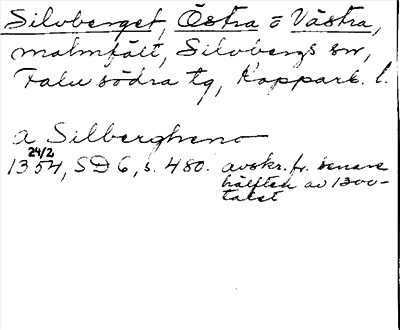 Silvberget, Östra o Västra,
malmfält, Silvbergs sn,
Falu södra tg, Kopparb. l.
a Silbergheno
24/2
1354, SD 6, s. 480. avskr. fr. senare
hälften av 1300-
talet